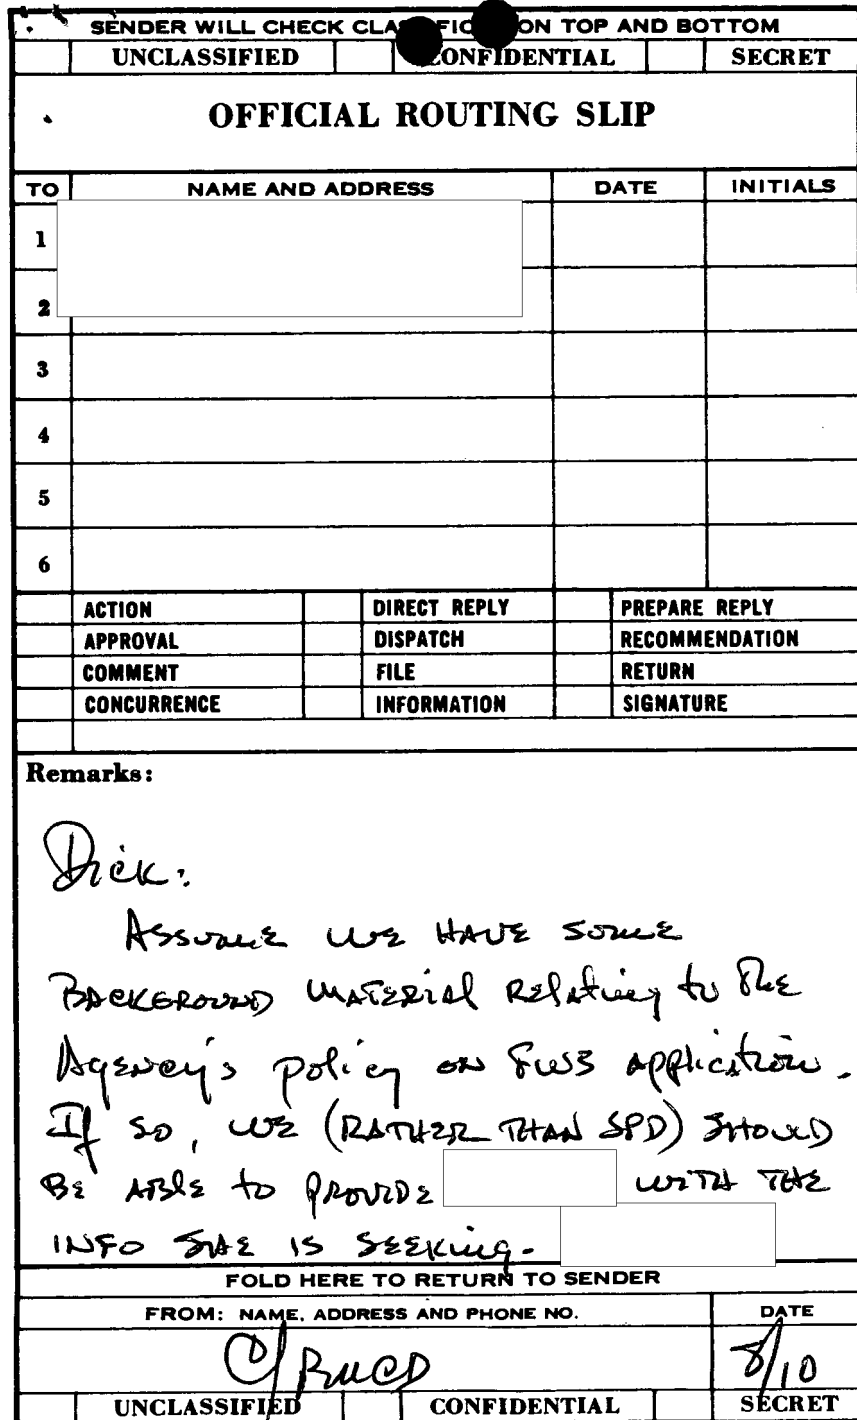 SENDER WILL CHECK CLASSIFICATION TOP AND BOTTOM
UNCLASSIFIED CONFIDENTIAL SECRET
OFFICIAL ROUTING SLIP
TO NAME AND ADDRESS DATE INITIALS
1
2
3
4
5
6
ACTION DIRECT REPLY PREPARE REPLY
APPROVAL DISPATCH RECOMMENDATION
COMMENT FILE RETURN
CONCURRENCE INFORMATION SIGNATURE
Remarks:
Dick:
ASSUME WE HAVE SOME
BACKGROUND MATERIAL Relating to The
Agency's policy on FWS application.
If so, WE (RATHER THAN SPD) SHOULD
BE ABLE to PROVIDE WITH THE
INFO SHE IS SEEKing.
FOLD HERE TO RETURN TO SENDER
FROM: NAME, ADDRESS AND PHONE NO. DATE
8/10
UNCLASSIFIED CONFIDENTIAL SECRET